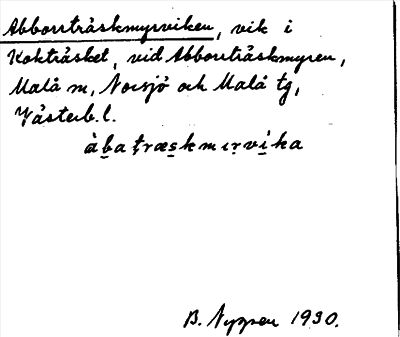 Abborrträskmyrviken, vik i
Kokträsket, vid Abborrträskmyren,
Malå m, Norsjö och Malå tg,
Västerb. l.
àb̲atræs̲kmɪrvi̲ka
B. Nyppen 1930.